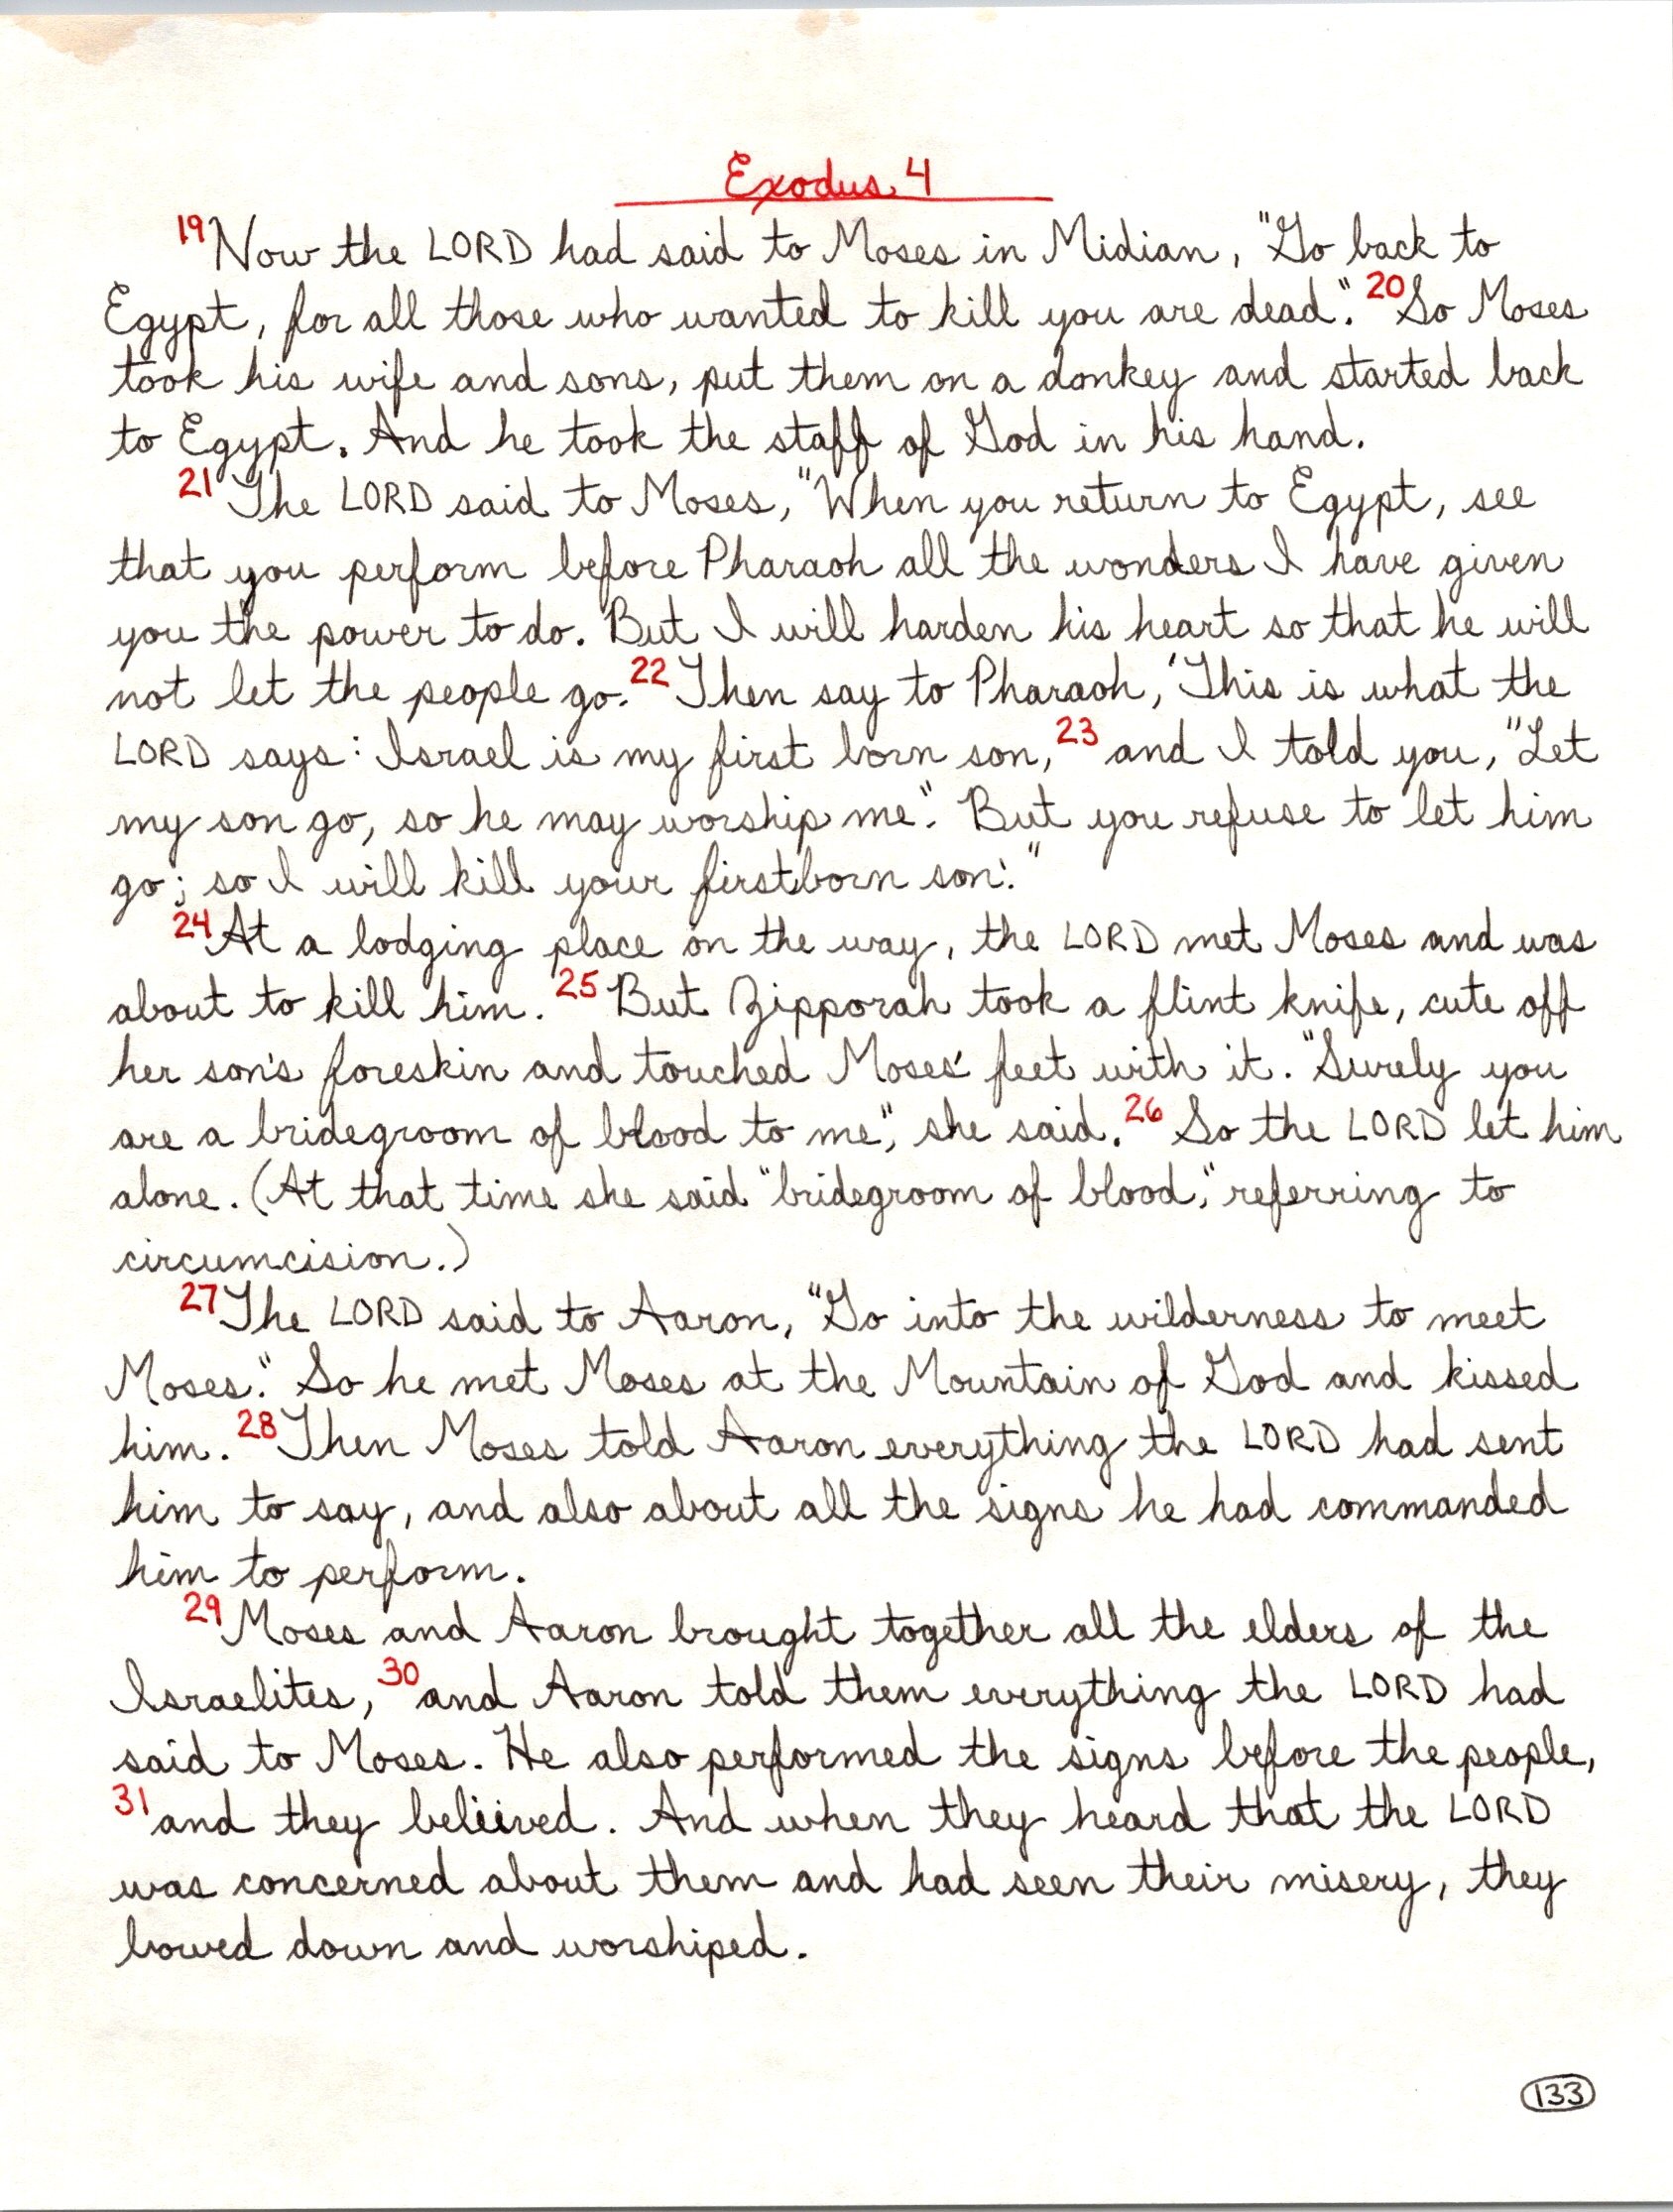 Exodus 4
19 Now the LORD had said to Moses in Midian, "Go back to
Egypt, for all those who wanted to kill you are dead." 20 So Moses
took his wife and sons, put them on a donkey and started back
to Egypt. And he took the staff of God in his hand.
21 The LORD said to Moses, "When you return to Egypt, see
that you perform before Pharaoh all the wonders I have given
you the power to do. But I will harden his heart so that he will
not let the people go. 22 Then say to Pharaoh, 'This is what the
LORD says: Israel is my first born son, 23 and I told you, "Let
my son go, so he may worship me." But you refuse to let him
go; so I will kill your firstborn son.'"
24 At a lodging place on the way, the LORD met Moses and was
about to kill him. 25 But Zipporah took a flint knife, cute off
her son's foreskin and touched Moses' feet with it. "Surely you
are a bridegroom of blood to me", she said. 26 So the LORD let him
alone. (At that time she said "bridegroom of blood," referring to
circumcision.)
27 The LORD said to Aaron, "Go into the wilderness to meet
Moses." So he met Moses at the Mountain of God and kissed
him. 28 Then Moses told Aaron everything the LORD had sent
him to say, and also about all the signs he had commanded
him to perform.
29 Moses and Aaron brought together all the elders of the
Israelites, 30 and Aaron told them everything the LORD had
said to Moses. He also performed the signs before the people,
31 and they beleived. And when they heard that the LORD
was concerned about them and had seen their misery, they
bowed down and worshiped.
133